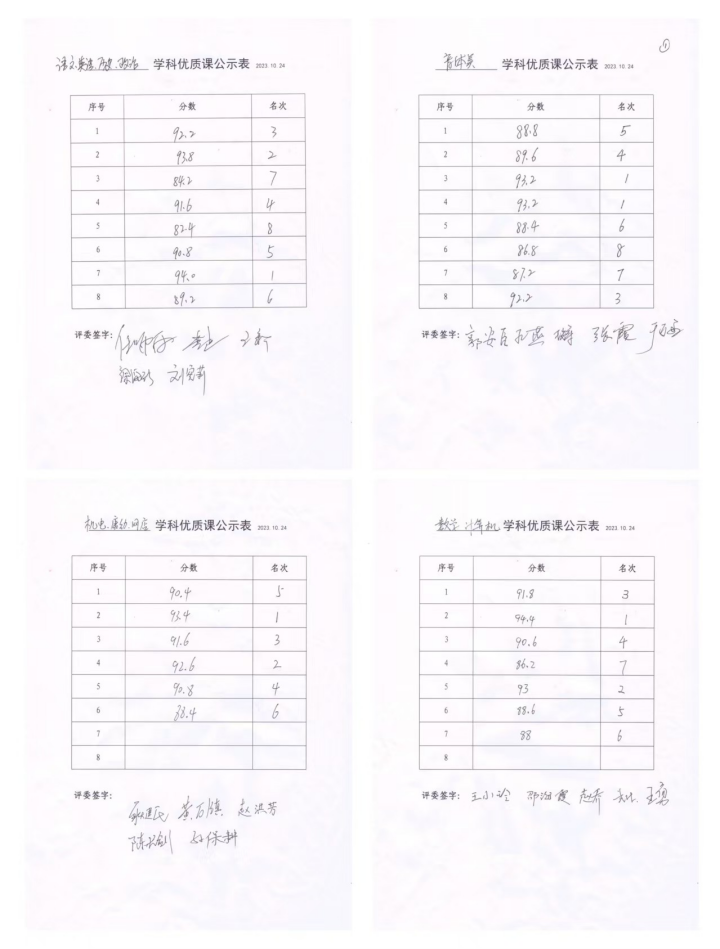 学科优质课公示表 2023.10.24
序号 分数 名次
1 92.2 3
2 93.8 2
3 84.2 7
4 91.6 4
5 82.4 8
6 90.8 5
7 94.0 1
8 89.2 6
评委签字:
音体美 学科优质课公示表 2023.10.24
序号 分数 名次
1 88.8 5
2 89.6 4
3 93.2 1
4 93.2 1
5 88.4 6
6 86.8 8
7 87.2 7
8 92.2 3
评委签字: 张霞
机电 学科优质课公示表 2023.10.24
序号 分数 名次
1 90.4 5
2 93.4 1
3 91.6 3
4 92.6 2
5 90.8 4
6 88.4 6
7
8
评委签字:
赵洪芳
数学 计算机 学科优质课公示表 2023.10.24
序号 分数 名次
1 91.8 3
2 94.4 1
3 90.6 4
4 86.2 7
5 93 2
6 88.6 5
7 88 6
8
评委签字: 王小玲